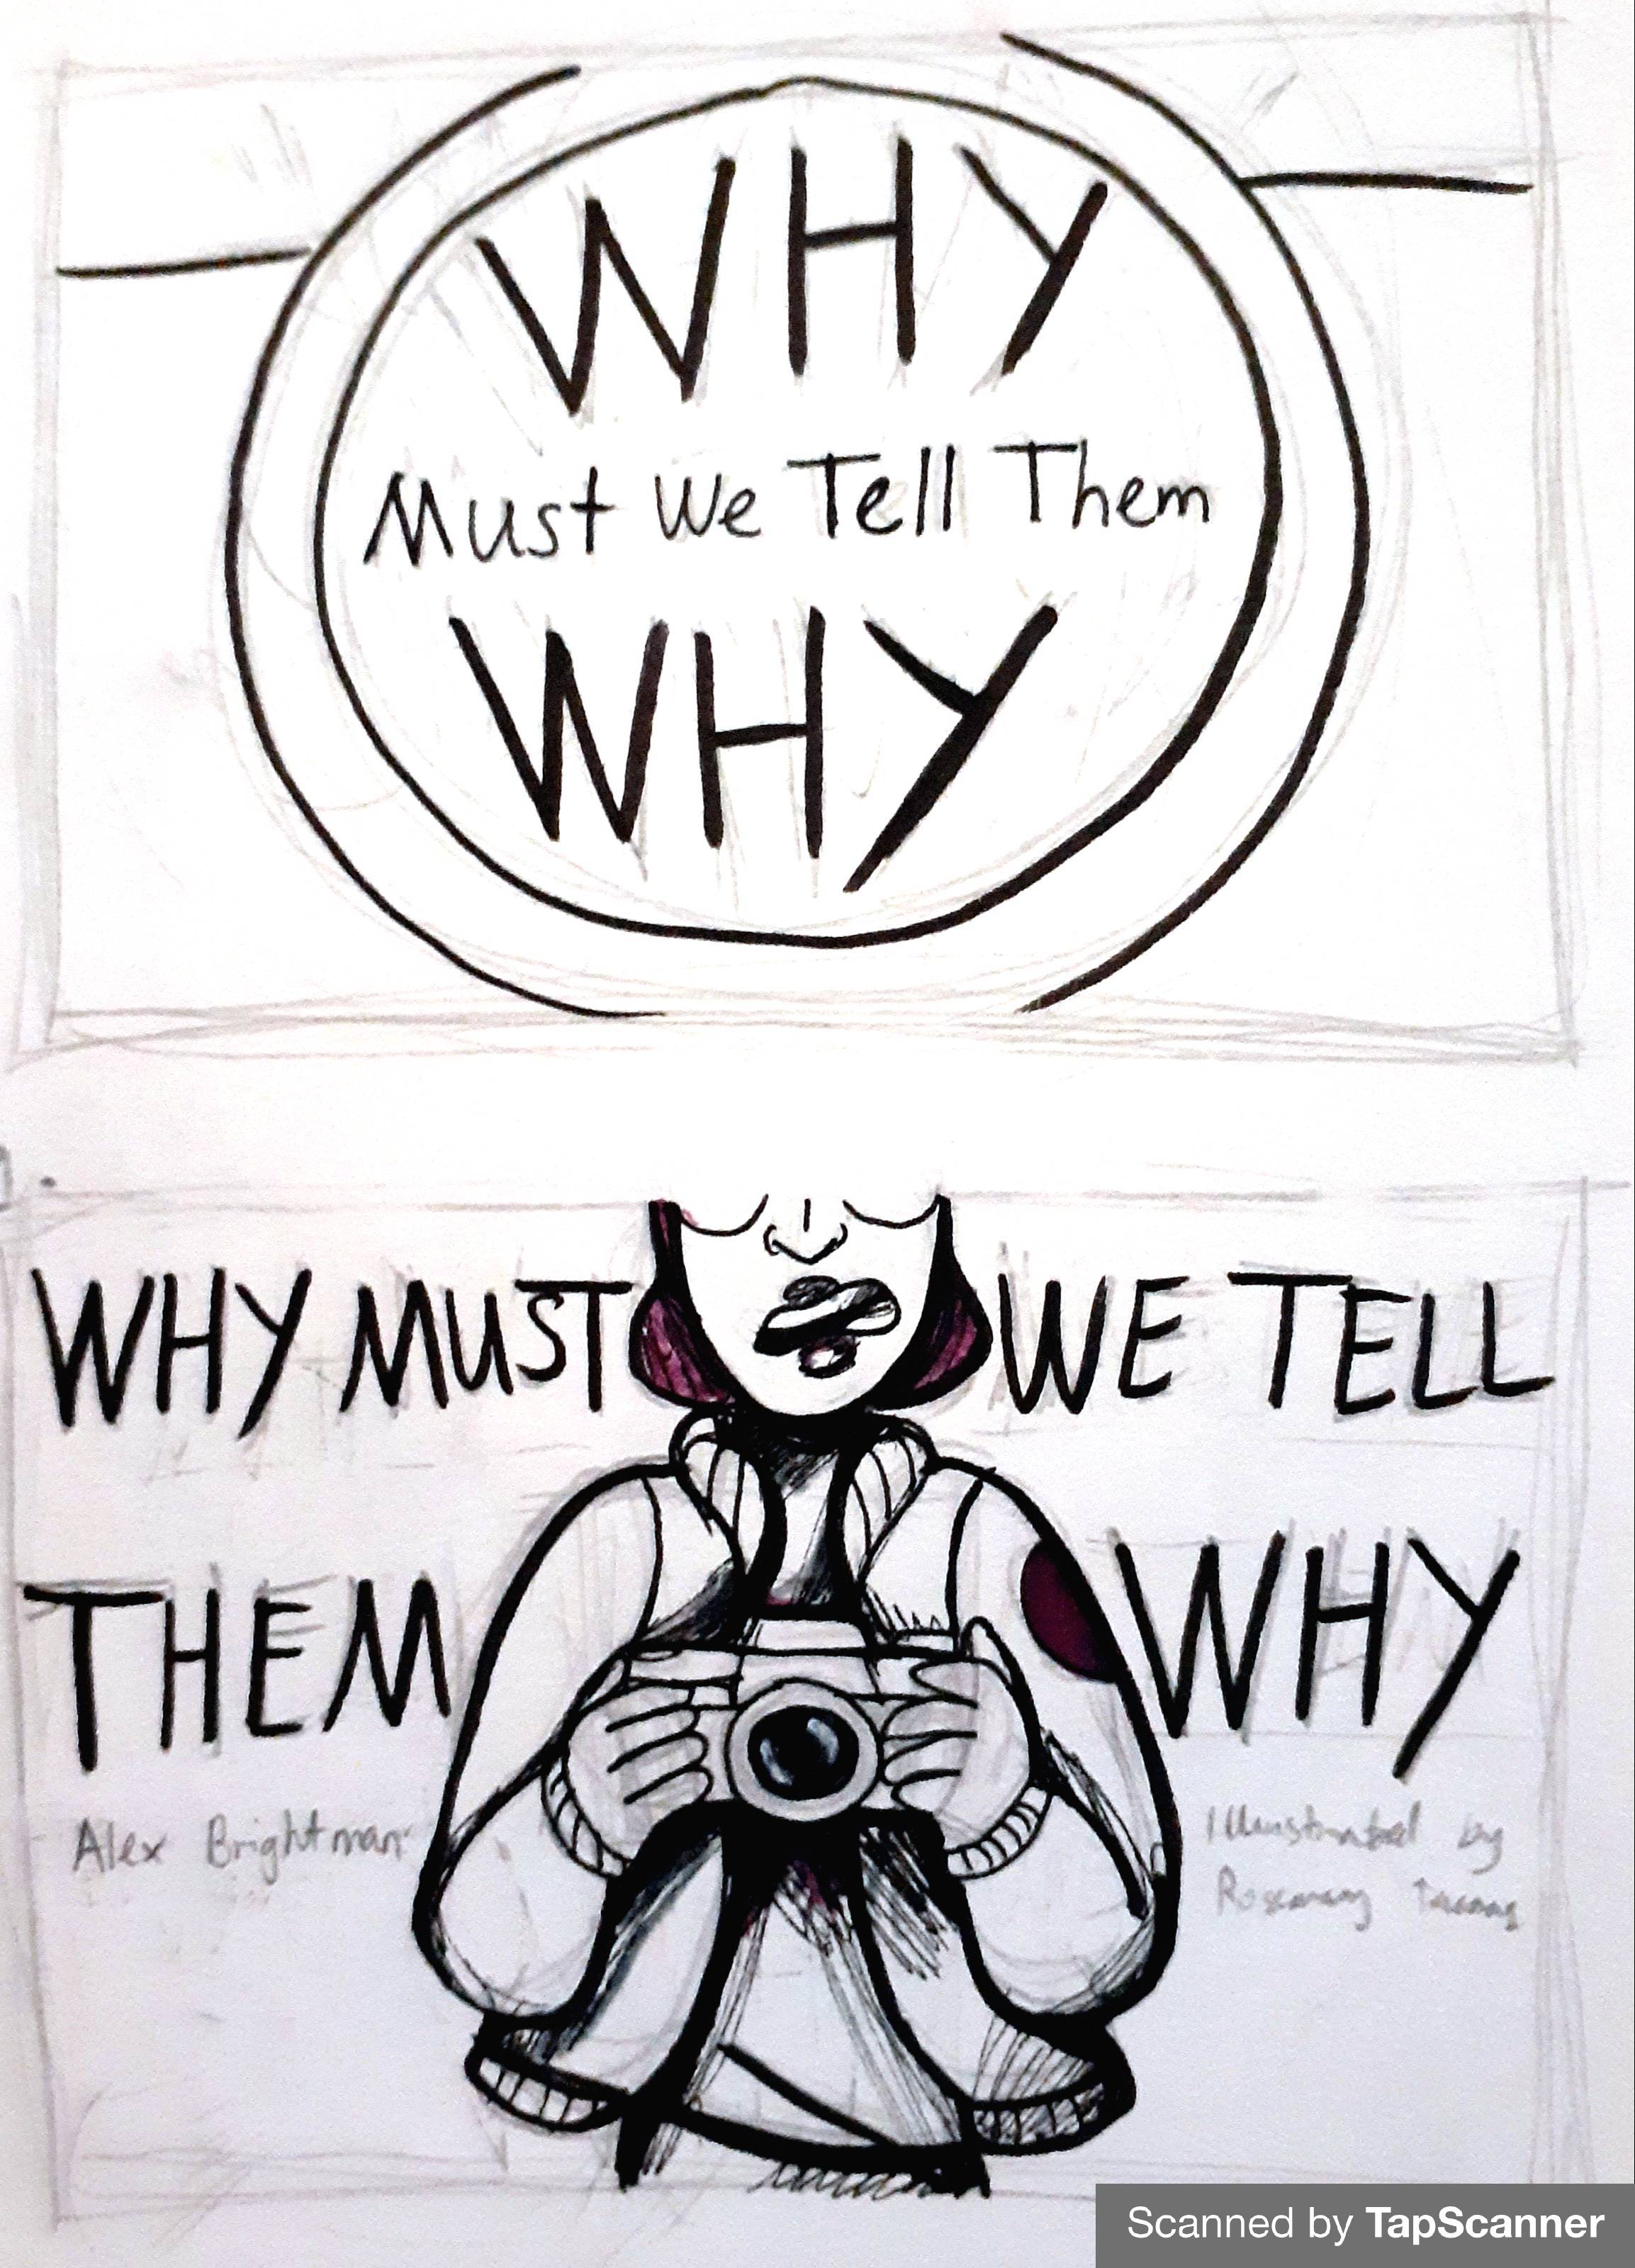 WHY
Must We Tell Them
WHY
WHY MUST WE TELL
THEM WHY
Alex Brightman
Illustrated by
Rosemary
Scanned by TapScanner